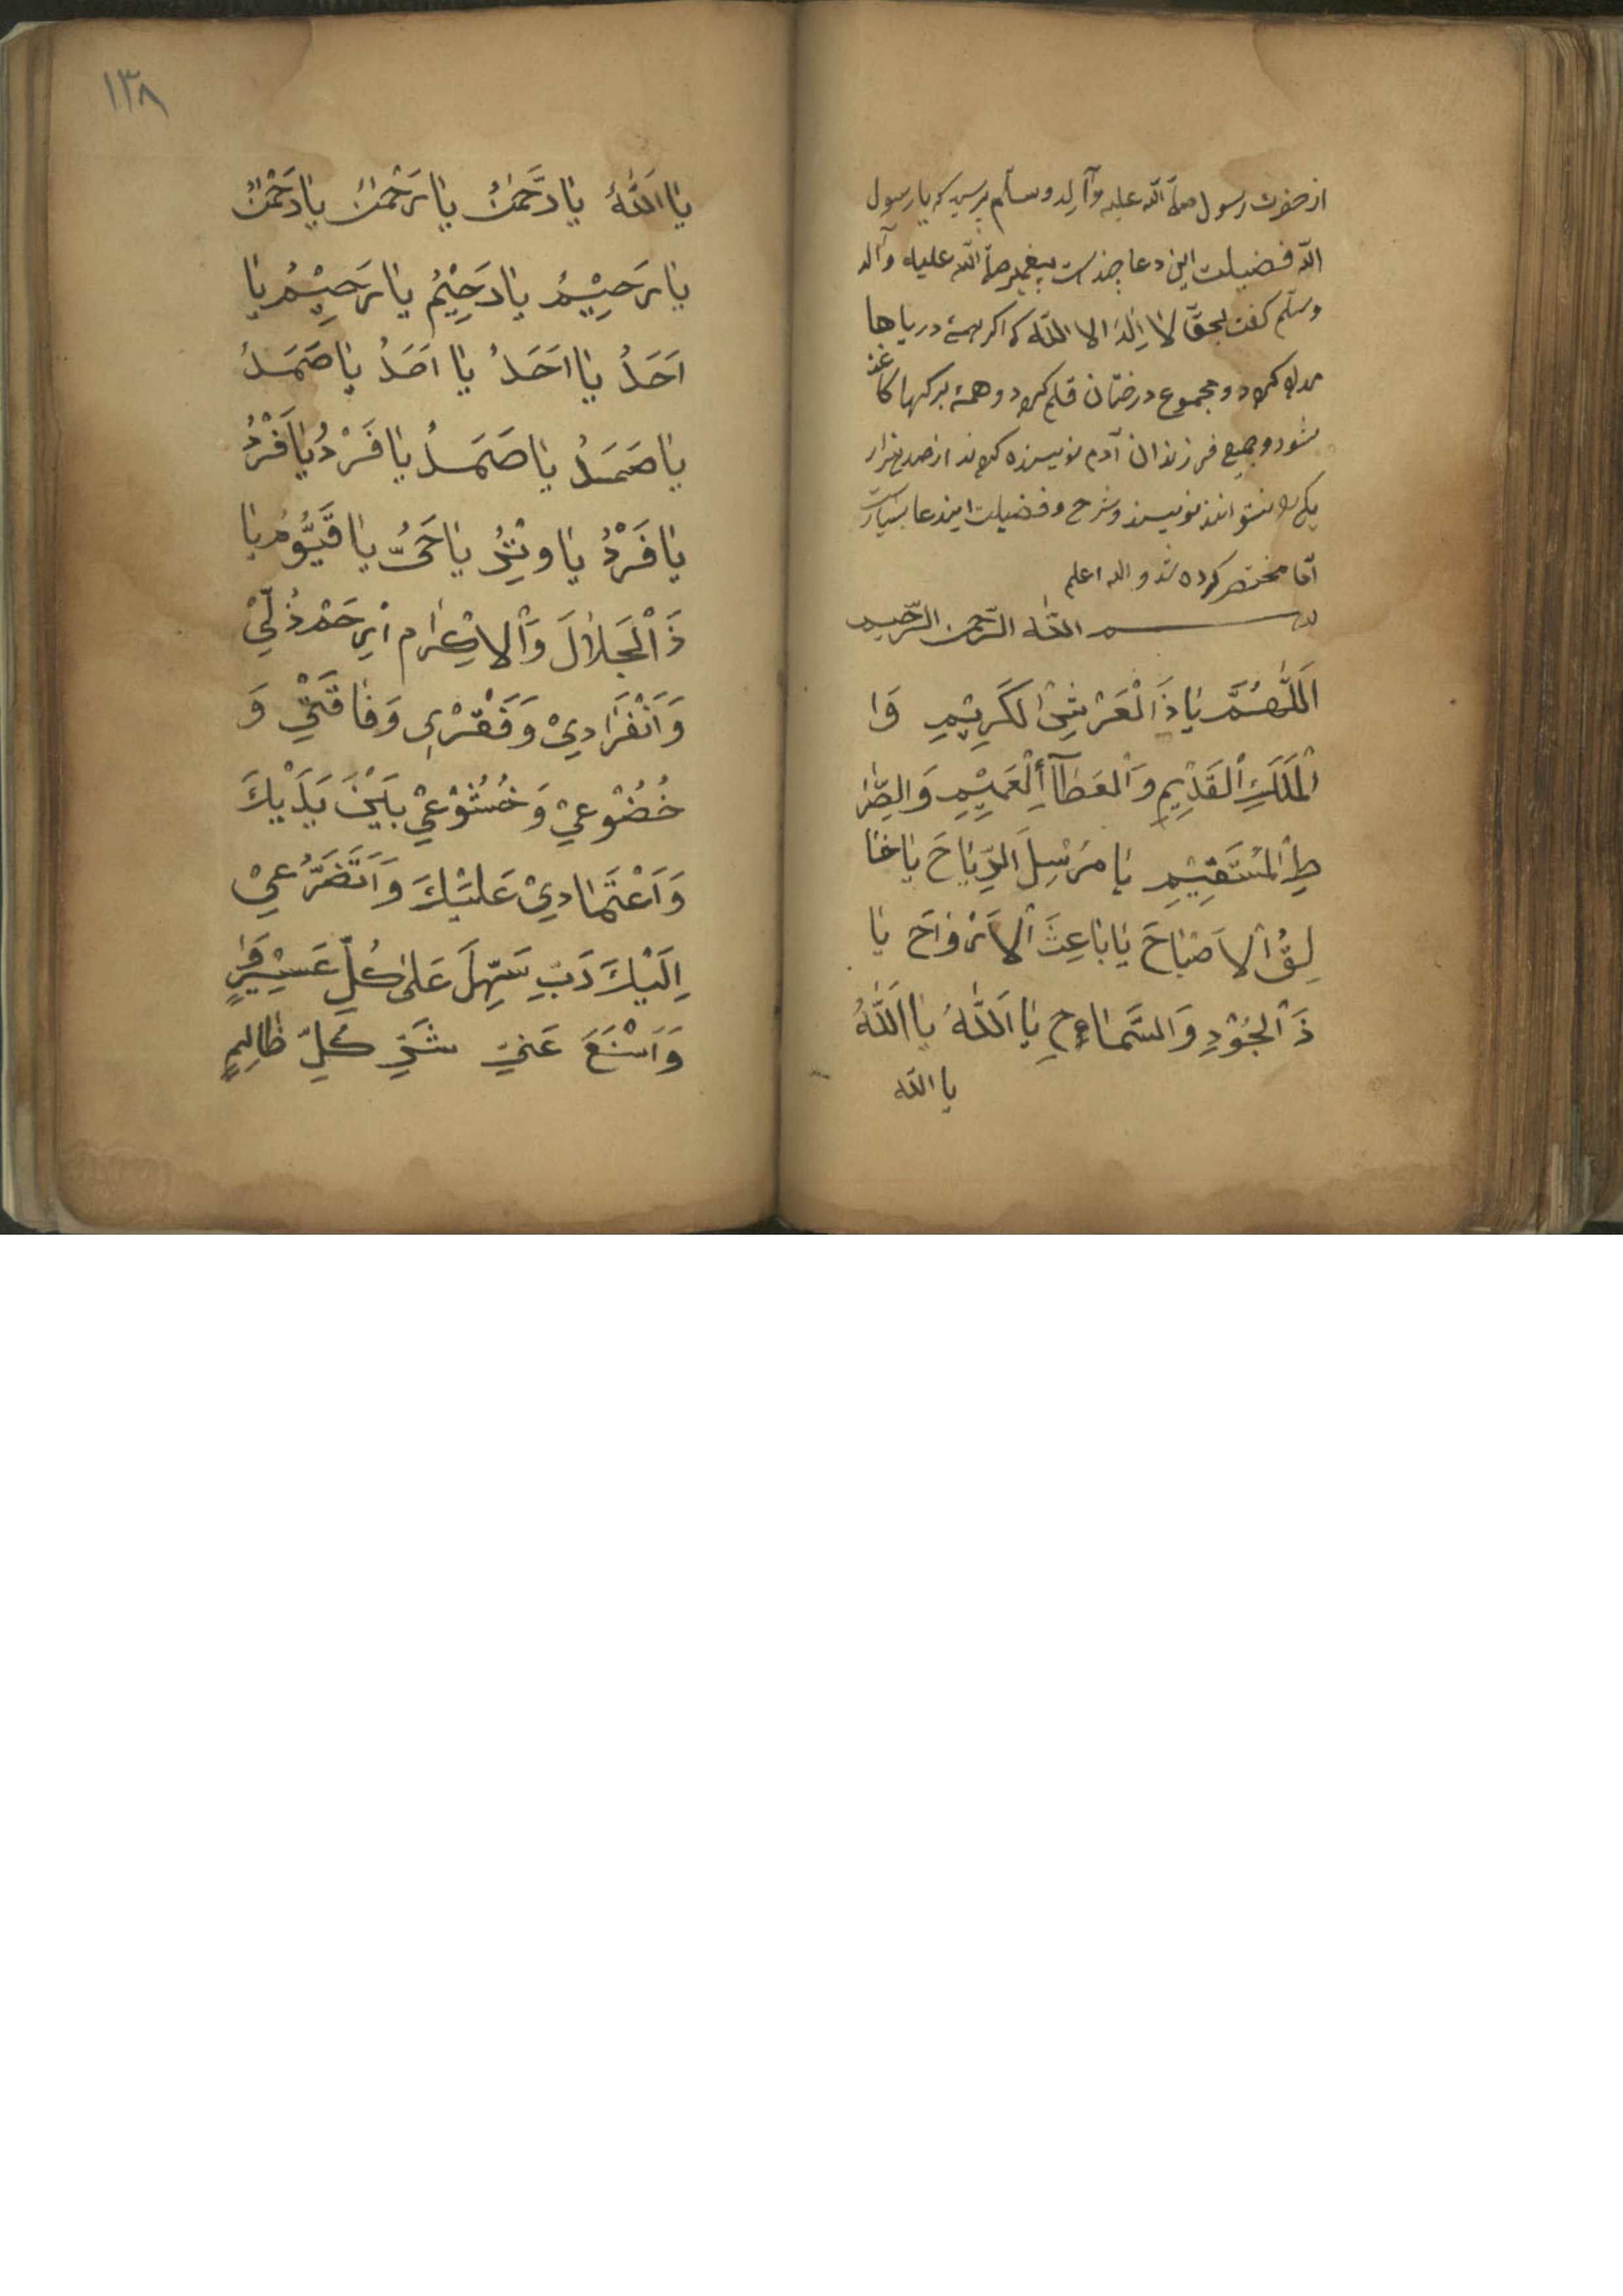 از حضرت رسول صلی الله علیه وآله وسلم پرسید که یا رسول
الله فضیلت این دعا چندست پیغمبر صلی الله علیه وآله
وسلم کفت بحق لا اله الا الله که اکر همهٔ دریاها
مداد کردد و مجموع درختان قلم کردد و همهٔ برکها کاغذ
شود و جمیع فرزندان آدم نویسنده کردند از صد هزار
یکی را نتوانند نویسند و شرح و فضیلت ایندعا بسیارست
امّا مختصر کرده شد و الله اعلم
بسم الله الرّحمن الرّحیم
اَللّٰهُمَّ یَا ذَاَلْعَرْشِ الکَرِیْمِ وَا
لْمَلَكِ اَلْقَدِیْمِ وَالْعَطَآءِ اَلْعَمِیْمِ وَالصِّرَا
طِ الْمُسْتَقِیْمِ یَا مُرْسِلَ الرِّیَاحَ یَا خَا
لِقُ الاَصْبَاحَ یَا بَاعِثَ الاَرْوَاحَ یَا
ذَاَلْجُوْدِ وَ السَّمَاحِ یَا اَللّٰهُ یَا اَللّٰهُ
یا الله
١٣٨
یَا اَللّٰهُ یَا رَحْمٰنُ یَا رَحْمٰنُ یَا رَحْمٰنُ
یَا رَحِیْمُ یَا رَحِیْمُ یَا رَحِیْمُ یَا
اَحَدُ یَا اَحَدُ یَا اَحَدُ یَا صَمَدُ
یَا صَمَدُ یَا صَمَدُ یَا فَرْدُ یَا فَرْدُ
یَا فَرْدُ یَا وِتْرُ یَا حَیُّ یَا قَیُّوْمُ یَا
ذَاَلْجَلَالَ وَاْلاِکْرَام اِرْحَمْ ذُلِّیْ
وَاَنْفَرَادِیْ وَ فَقْرِیْ وَ فَاقَتِیْ وَ
خُضُوْعِیْ وَ خُشُوْعِیْ بَیْنَ یَدَیْكَ
وَاَعْتَمَادِیْ عَلَیْكَ وَاَتَضَرُّعِیْ
اِلَیْكَ رَبِّ سَهِّلَ عَلیٰ کُلِّ عَسِیْرٍ
وَاَمْنَعَ عَنِّیْ شَرِّ کُلِّ ظَالِمٍ